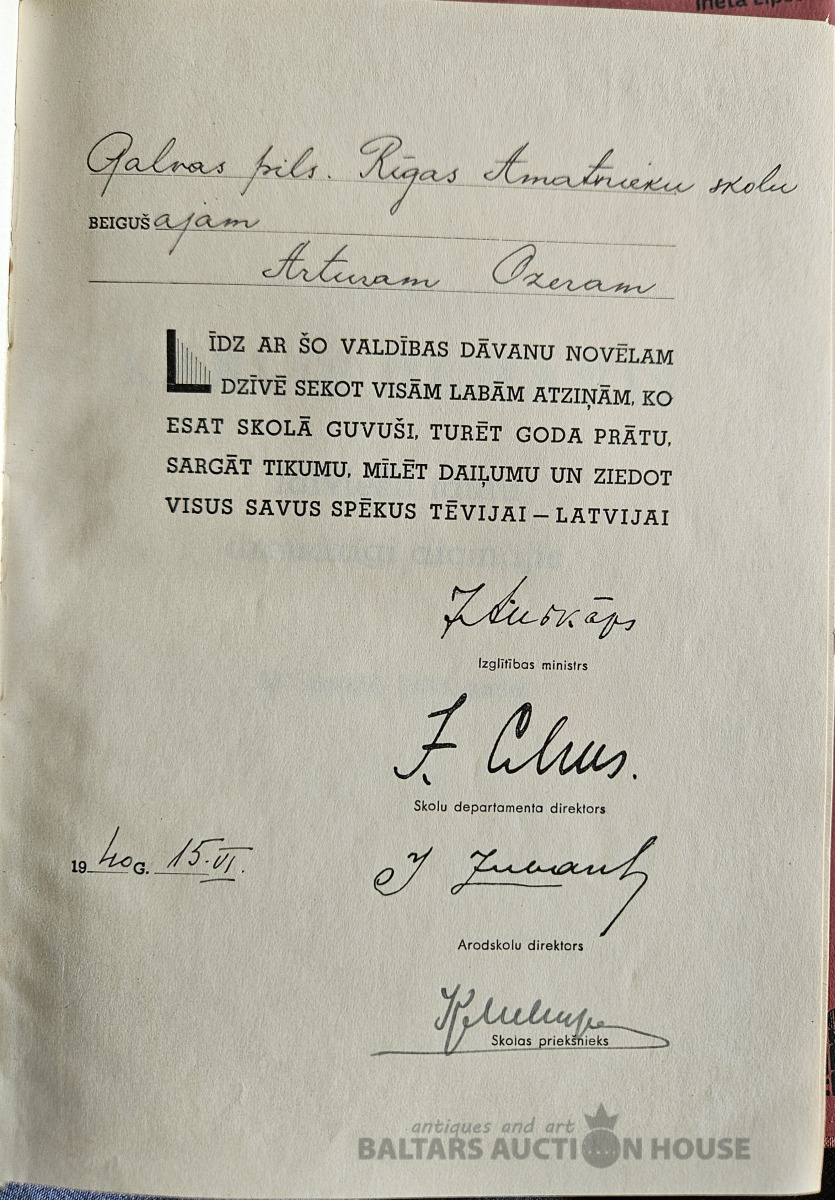 Galvas pils. Rīgas Amatnieku skolu
BEIGUŠajam
Arturam Ozeram
LĪDZ AR ŠO VALDĪBAS DĀVANU NOVĒLAM
DZĪVĒ SEKOT VISĀM LABĀM ATZIŅĀM, KO
ESAT SKOLĀ GUVUŠI, TURĒT GODA PRĀTU,
SARGĀT TIKUMU, MĪLĒT DAIĻUMU UN ZIEDOT
VISUS SAVUS SPĒKUS TĒVIJAI – LATVIJAI
J Auškāps
Izglītības ministrs
Skolu departamenta direktors
1940 G. 15.VI.
Arodskolu direktors
Skolas priekšnieks
antiques and art
BALTARS AUCTION HOUSE